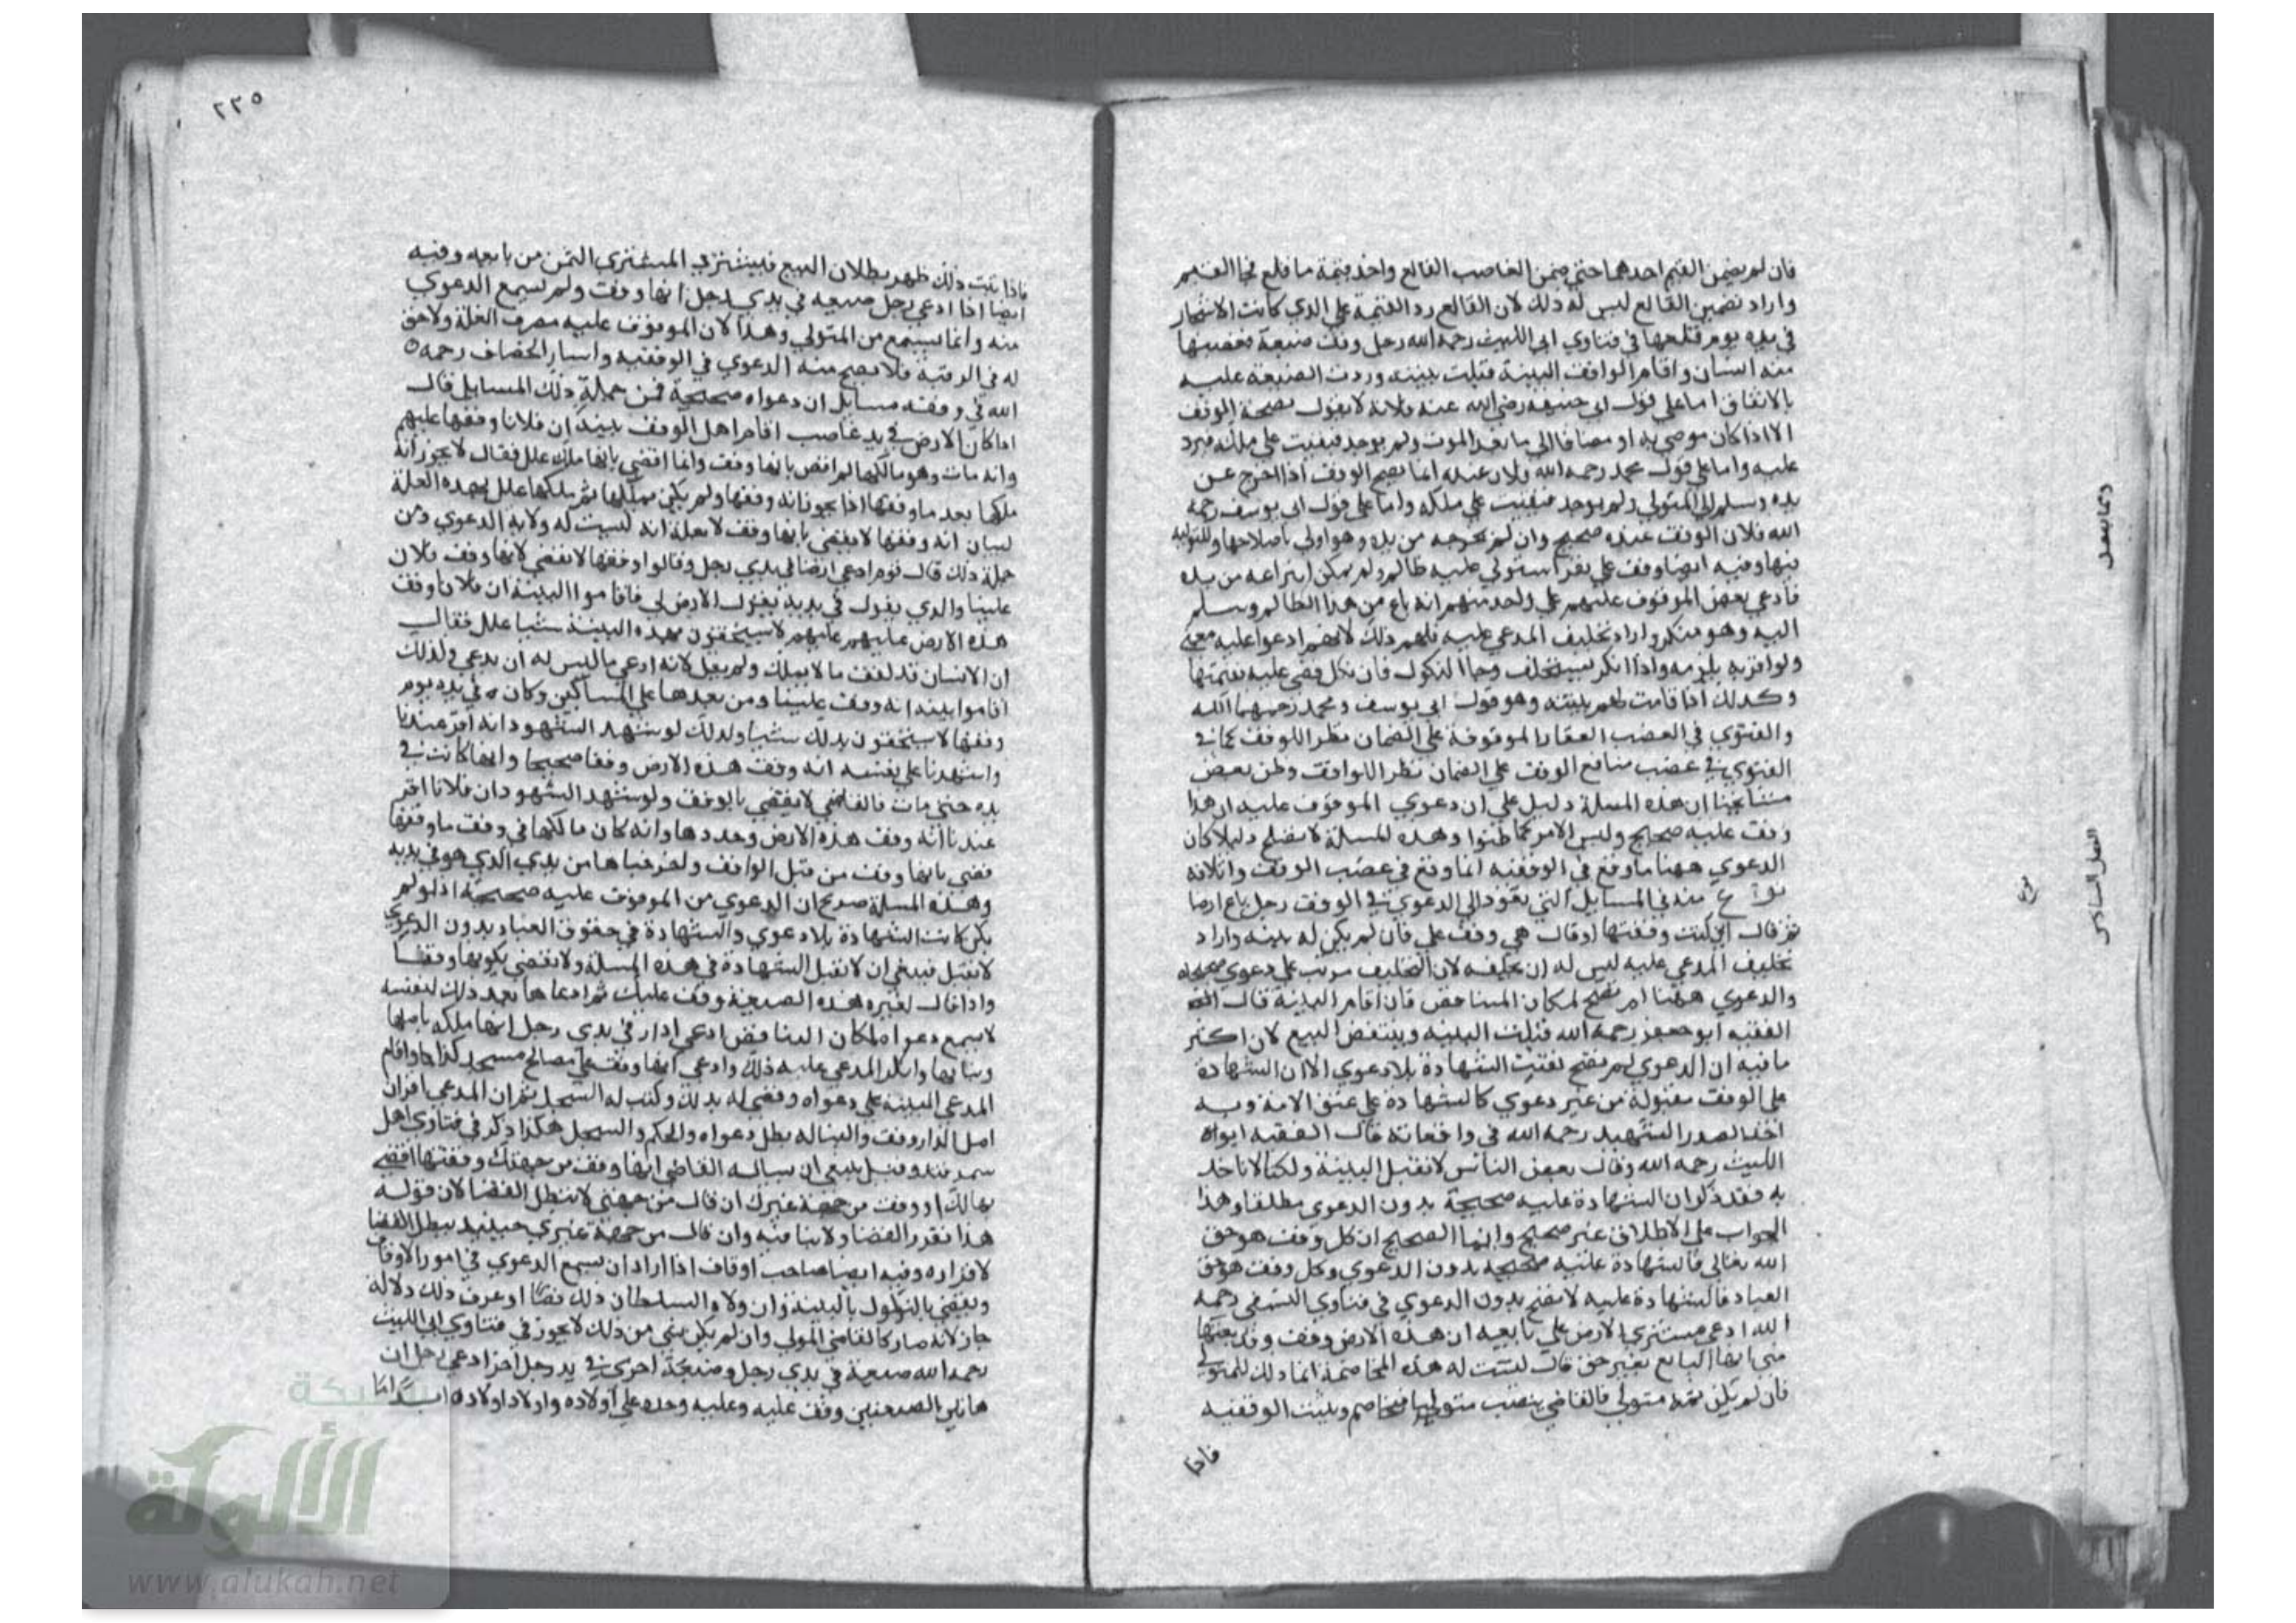 فان لم يضمن القيم احدهما حتى ضمن الغاصب القالع واخذ قيمة ما قلع فجا القيم
واراد تضمين القالع ليس له ذلك لان القالع رد القيمة على الذي كانت الاشجار
في يده يوم قلعها في فتاوي ابي الليث رحمه الله رجل وقف ضيعة فغصبها
منه انسان واقام الواقف البينة قبلت بينته وردت الضيعة عليه
بالاتفاق اما على قول ابي حنيفة رضي الله عنه فلانه لا يقول بصحة الوقف
الا اذا كان موصي به او مضافا الي ما بعد الموت ولم يوجد فبقيت علي ملكه فيرد
عليه واما على قول محمد رحمه الله فلان عنده انما يصح الوقف اذا اخرج عن
يده وسلم الى المتولي ولم يوجد فبقيت علي ملكه واما على قول ابي يوسف رحمه
الله فلان الوقف عنده صحيح وان لم يخرجه من يده وهو اولي باصلاحها وللتوليه
فيها وفيه ايضا وقف علي نفر استولي عليه ظالم ولم يمكن انتزاعه من يده
فادعي بعض الموقوف عليهم علي واحد منهم انه باع من هذا الظالم وسلم
اليه وهو منكر واراد تحليف المدعي عليه فلهم ذلك لانهم ادعوا عليه معني
ولو اقر به يلزمه واذا انكر يستحلف رجا النكول فان نكل قضي عليه بقيمتها
وكذلك اذا قامت لهم بينة وهو قول ابي يوسف ومحمد رحمهما الله
والفتوي في الغصب العقار الموقوفة علي الضمان نظرا للوقف كما في
الفتوي في غصب منافع الوقف علي الضمان نظرا للواقف وظن بعض
مشايخنا ان هذه المسلة دليل علي ان دعوي الموقوف عليه ان هذا
وقف عليه صحيح وليس الامر كما ظنوا وهذه المسلة لا تصلح دليلا كان
الدعوي ههنا ما وقع في الوقفية انما وقع في غصب الوقف واتلافه
نوع منه في المسايل التي تعود الي الدعوي في الوقف رجل باع ارضا
ثم قال اني كنت وقفتها او قال هي وقف علي فان لم يكن له بينة واراد
تحليف المدعي عليه ليس له ان يحلفه لان التحليف مرتب علي دعوي صحيحه
والدعوي ههنا لم تصح لمكان التناقض فان اقام البينة قال
الفقيه ابو جعفر رحمه الله قبلت البينة وينتقض البيع لان اكثر
ما فيه ان الدعوي لم تصح فبقيت الشهادة بلا دعوي الا ان الشهادة
على الوقف مقبولة من غير دعوي كالشهادة علي عتق الامة وبه
اخذ الصدر الشهيد رحمه الله في واقعاته قال الفقيه ابو
الليث رحمه الله وقال بعض الناس لا تقبل البينة ولكنا لا ناخذ
به فقد ذكر ان الشهادة عليه صحيحة بدون الدعوي مطلقا وهذا
الجواب على الاطلاق غير صحيح وانما الصحيح ان كل وقف هو حق
الله تعالي فالشهادة عليه صحيحة بدون الدعوي وكل وقف هو حق
العباد فالشهادة عليه لا تصح بدون الدعوي في فتاوي النسفي رحمه
الله ادعي مشتري الارض علي بايعه ان هذه الارض وقف وقد بعتها
مني ايها البايع بغير حق قال ليست له هذه المخاصمة انما ذلك للمتولي
فان لم يكن ثمة متولي فالقاضي ينصب متوليا فيخاصم ويثبت الوقفيه
فاذا
ومما يتصل
الفصل السادس
نوع
٢٢٥
فاذا ثبت ذلك ظهر بطلان البيع فيسترد المشتري الثمن من بايعه وفيه
ايضا اذا ادعي رجل ضيعه في يدي رجل انها وقف ولم تسمع الدعوي
منه وانما يسمع من المتولي وهذا لان الموقوف عليه مصرف الغلة ولا حق
له في الرقبة فلا يصح منه الدعوي في الوقفيه واشار الخصاف رحمه
الله في وقفه مسايل ان دعواه صحيحة فمن جملة ذلك المسايل قال
اذا كان الارض في يد غاصب اقام اهل الوقف بينة ان فلانا وقفها عليهم
وانه مات وهو مالكها لم اقض بانها وقف وانما اقضي بانها ملك علل فقال لا يجوز انه
ملكها بعد ما وقفها اذا يجوز انه وقفها ولم يكن يملكها ثم ملكها علل بهذه العلة
لبيان انه وقفها لا يقضي بانها وقف لا بعلة انه ليست له ولاية الدعوي ومن
جملة ذلك قال قوم ادعي ارضا في يدي رجل وقالوا وقفها لا يقضي لانها وقف فلان
علينا والذي يقول في يديه يقول الارض لي فاقاموا البينة ان فلانا وقف
هذه الارض عليهم لا يستحقون بهذه البينة شيا علل فقال
ان الانسان قد يقف ما لا يملك ولم يقل لانه ادعي ما ليس له ان يدعي وكذلك
اقاموا بينة انه وقف علينا ومن بعدها علي المساكين وكان في يده يوم
وقفها لا يستحقون بذلك شيا وكذلك لو شهد الشهود انه اقر عندنا
واشهدنا علي نفسه انه وقف هذه الارض وقفا صحيحا وانها كانت في
يده حتى مات فالقاضي لا يقضي بالوقف ولو شهد الشهود ان فلانا اقر
عندنا انه وقف هذه الارض وحددها وانه كان مالكها في وقت ما وقفها
قضي بانها وقف من قبل الواقف واخرجناها من يدي الذي هو في يديه
وهذه المسلة صريح ان الدعوي من الموقوف عليه صحيحة اذ لو لم
يكن كانت الشهادة بلا دعوي والشهادة في حقوق العباد بدون الدعوي
لا تقبل فينبغي ان لا تقبل الشهادة في هذه المسلة ولا تقضي بكونها وقفا
واذا قال لغيره هذه الضيعة وقف عليك ثم ادعاها بعد ذلك لنفسه
لا يسمع دعواه لمكان التناقض ادعي ادار في يدي رجل انها ملكه باصلها
وبنائها وانكر المدعي عليه ذلك وادعي انها وقف علي مصالح مسجد كذا واقام
المدعي البينة علي دعواه وقضي له بذلك وكتب له السجل ثم ان المدعي اقر ان
اصل الدار وقف والبنا له بطل دعواه والحكم والسجل هكذا ذكر في فتاوي اهل
سمرقند وقيل ينبغي ان يساله القاضي انها وقف من جهتك وقفتها
او وقف من جهة غيرك ان قال من جهتي لا تبطل القضا لان قوله
هذا تقرير القضا ولا ينافيه وان قال من جهة غيري حينئذ يبطل القضا
لاقراره وفيه ايضا صاحب اوقاف اذا اراد ان يسمع الدعوي في امور الاوقاف
ويقضي بالنكول بالبينة ان ولاه السلطان ذلك نصا او عرف ذلك دلالة
جاز لانه صار كالقاضي المولي وان لم يكن شي من ذلك لا يجوز في فتاوي ابي الليث
رحمه الله ضيعة في يدي رجل وضيعة اخري في يد رجل اخر ادعي رجل ان
هاتين الضيعتين وقف عليه وعليه وحده علي اولاده واولاد اولاده ابدا
شبكة
الألوكة
www.alukah.net